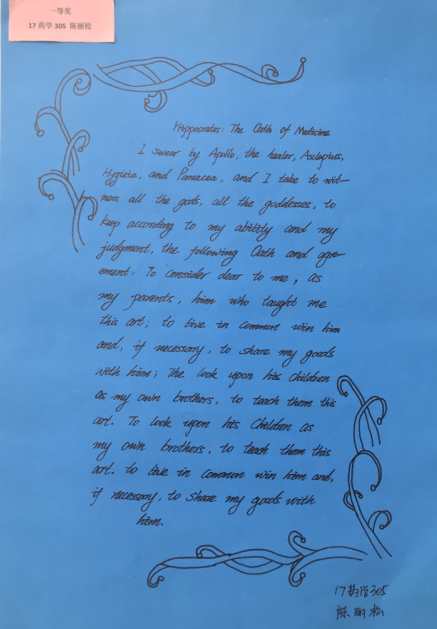 一等奖
17药学305 陈丽松
Hippocrates: The Oath of Medicine
I swear by Apollo, the healer, Asclepius,
Hygieia, and Panacea, and I take to wit-
ness all the gods, all the goddesses, to
keep according to my ability and my
judgment, the following Oath and agre-
ement: To consider dear to me, as
my parents, him who taught me
this art; to live in common win him
and, if necessary, to share my goods
with him; The look upon his Children
as my own brothers, to teach them this
art. To look upon his Children as
my own brothers, to teach them this
art. to live in Common win him and,
if necessary, to share my goods with
him.
17药学305
陈丽松